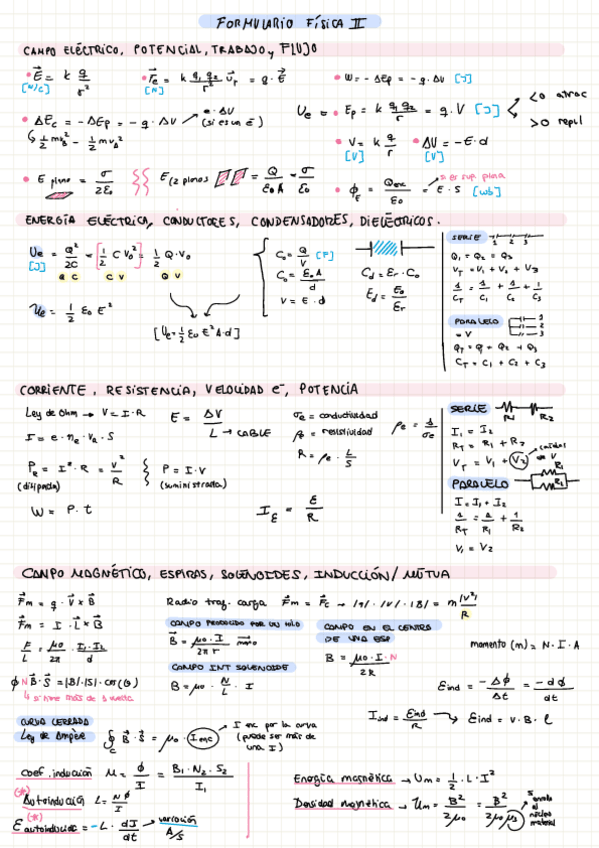 FORMULARIO FÍSICA II
CAMPO ELÉCTRICO, POTENCIAL, TRABAJO y FLUJO
• E⃗ = k q/r² [N/C]
• F⃗e = k q₁q₂/r² · u⃗r = q · E⃗ [N]
• W = -ΔEp = -q · ΔV [J]
• ΔEc = -ΔEp = -q · ΔV → e · ΔV (si es un e⁻)
↳ 1/2 mv_B² - 1/2 mv_A²
Ue = Ep = k q₁q₂/r = q · V [J] <0 atrac >0 repul
• V = k q/r [V]
• ΔV = -E · d [V]
• E plano = σ/2ε₀
E(2 planos) = Q/ε₀A = σ/ε₀
• ϕE = Qenc/ε₀ = E · S [wb] si es sup. plana
ENERGÍA ELÉCTRICA, CONDUCTORES, CONDENSADORES, DIELÉCTRICOS.
Ue = Q²/2C = [1/2 C V₀²] = 1/2 Q · V₀
[J] Q C C V Q V
Ue = 1/2 ε₀ E²
[Ue = 1/2 ε₀ E² A · d]
C₀ = Q/V [F]
C₀ = ε₀A/d
V = E · d
Cd = εr · C₀
Ed = E₀/εr
SERIE 1 2 3
Q₁ = Q₂ = Q₃
VT = V₁ + V₂ + V3
1/CT = 1/C₁ + 1/C₂ + 1/C₃
PARALELO 1 2 3
= V
QT = Q₁ + Q₂ + Q₃
CT = C₁ + C₂ + C₃
CORRIENTE, RESISTENCIA, VELOCIDAD e⁻, POTENCIA
Ley de Ohm → V = I · R
E = ΔV/L → CABLE
I = e · ne · va · S
σe = conductividad
ρe = resistividad
ρe = 1/σe
R = ρe · L/S
PR = I² · R = V²/R
(disipada)
P = I · V
(suministrada)
W = P · t
Iε = ε/R
SERIE R₁ R₂
I₁ = I₂
RT = R₁ + R₂
VT = V₁ + V₂ caídas de V
PARALELO R₁ R₂
I = I₁ + I₂
1/RT = 1/R₁ + 1/R₂
V₁ = V₂
CAMPO MAGNÉTICO, ESPIRAS, SOLENOIDES, INDUCCIÓN/MUTUA
F⃗m = q · V⃗ × B⃗
F⃗m = I · L⃗ × B⃗
F/L = μ₀/2π · I₁·I₂/d
ϕ N B⃗ · S⃗ = |B|·|S|·cos(θ)
↳ si tiene más de 1 vuelta
Radio tray. carga F⃗m = F⃗c → |q|·|V|·|B| = m|V²|/R
CAMPO PRODUCIDO POR UN HILO
B⃗ = μ₀ · I/2π r
CAMPO INT SOLENOIDE
B = μ₀ · N/L · I
CAMPO EN EL CENTRO
DE UNA ESP
B = μ₀ · I · N/2R
momento (m) = N · I · A
Eind = -Δϕ/Δt = -dϕ/dt
Iind = Eind/R → Eind = V · B · l
CURVA CERRADA
Ley de Ampère ∮c B⃗ · S⃗ = μ₀ · I enc
I enc por la curva
(puede ser más de
una I)
Coef. inducción M = ϕ/I = B₁ · N₂ · S₂/I₁
(*)
Autoinducción L = Nϕ/I
(*)
E autoinducida = -L · dI/dt → variación A/s
Energía magnética → Um = 1/2 · L · I²
Densidad magnética → Um = B²/2μ₀ = B²/2μ₀μr